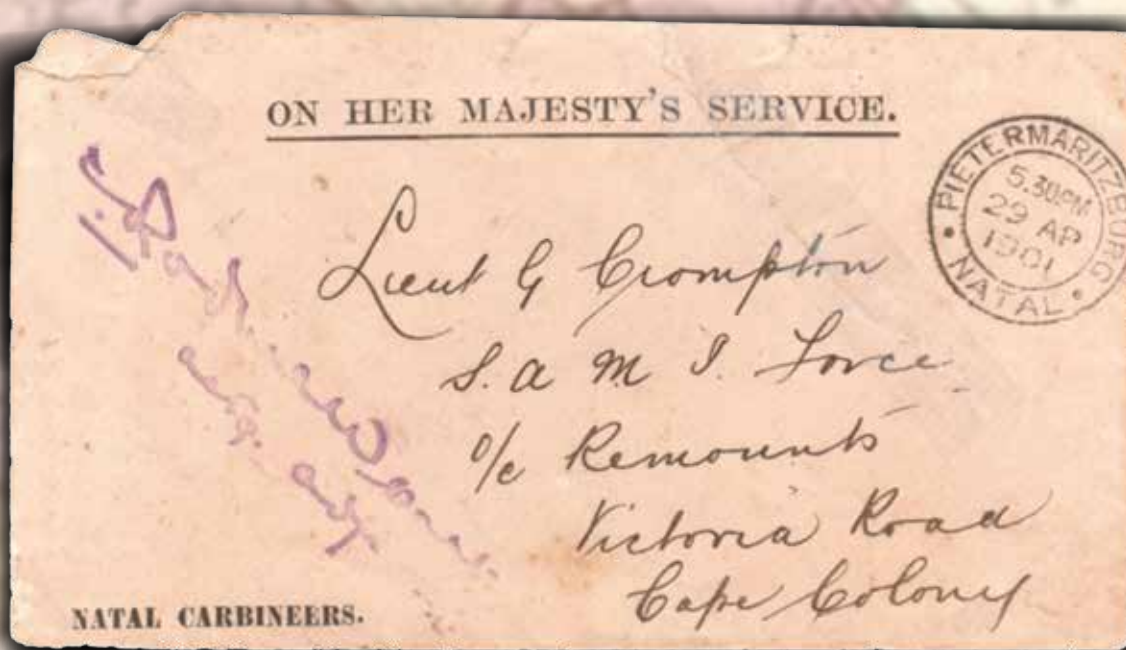 ON HER MAJESTY'S SERVICE.
PIETERMARITZBURG
5.30PM
29 AP
1901
NATAL
Lieut G Crompton
S. A M I. Force
o/c Remounts
Victoria Road
Cape Colony
NATAL CARBINEERS.